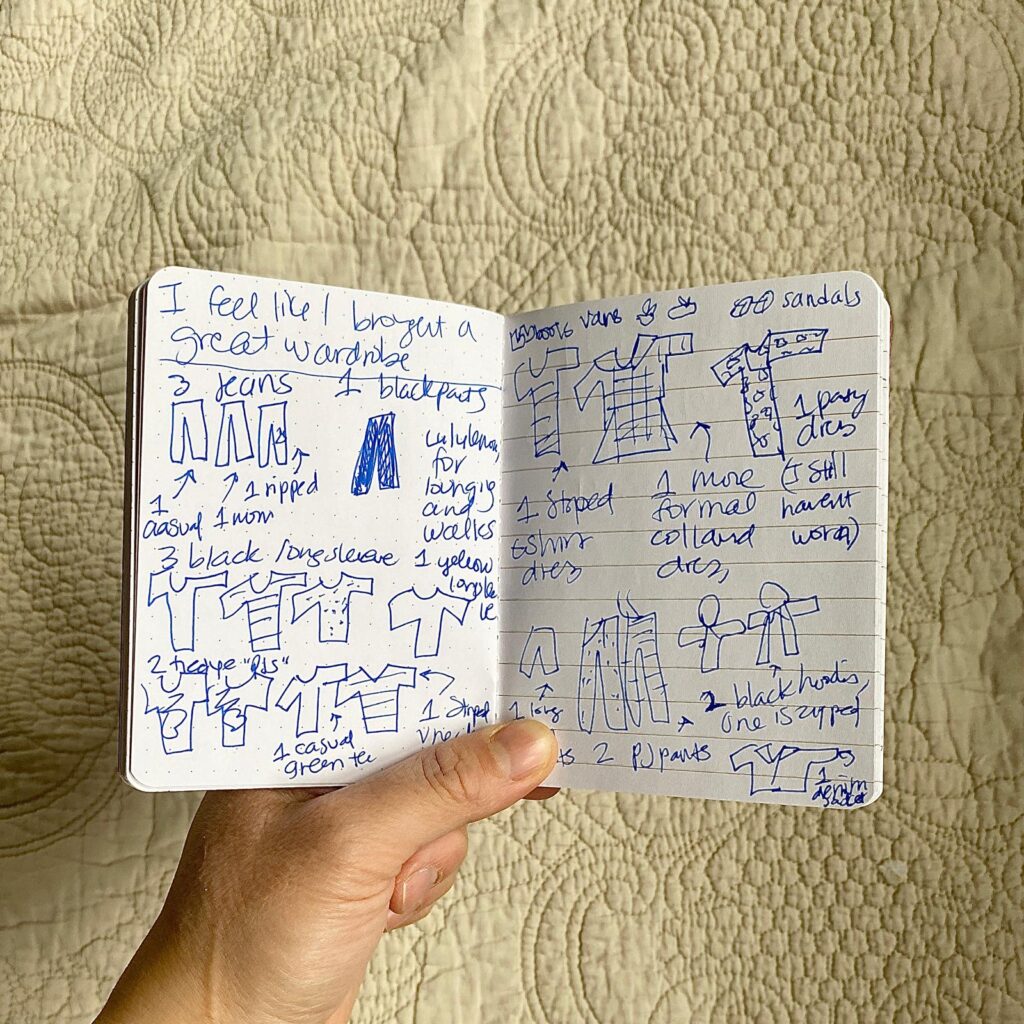 I feel like I brought a
great wardribe
3 Jeans
1 black pants
1 ripped
1
casual
1 mom
lululemon
for
lounging
and
walks
3 black longsleeve
1 yellow
2
"PJs"
1 casual
green tee
1 Striped
boots vans
sandals
1 striped
tshirt
dres
1 more
formal
collard
dres
1 party
dres
(I still
havent
worn)
1
2 PJ pants
2 black hoodis,
one is zipped
1
denim
jacket